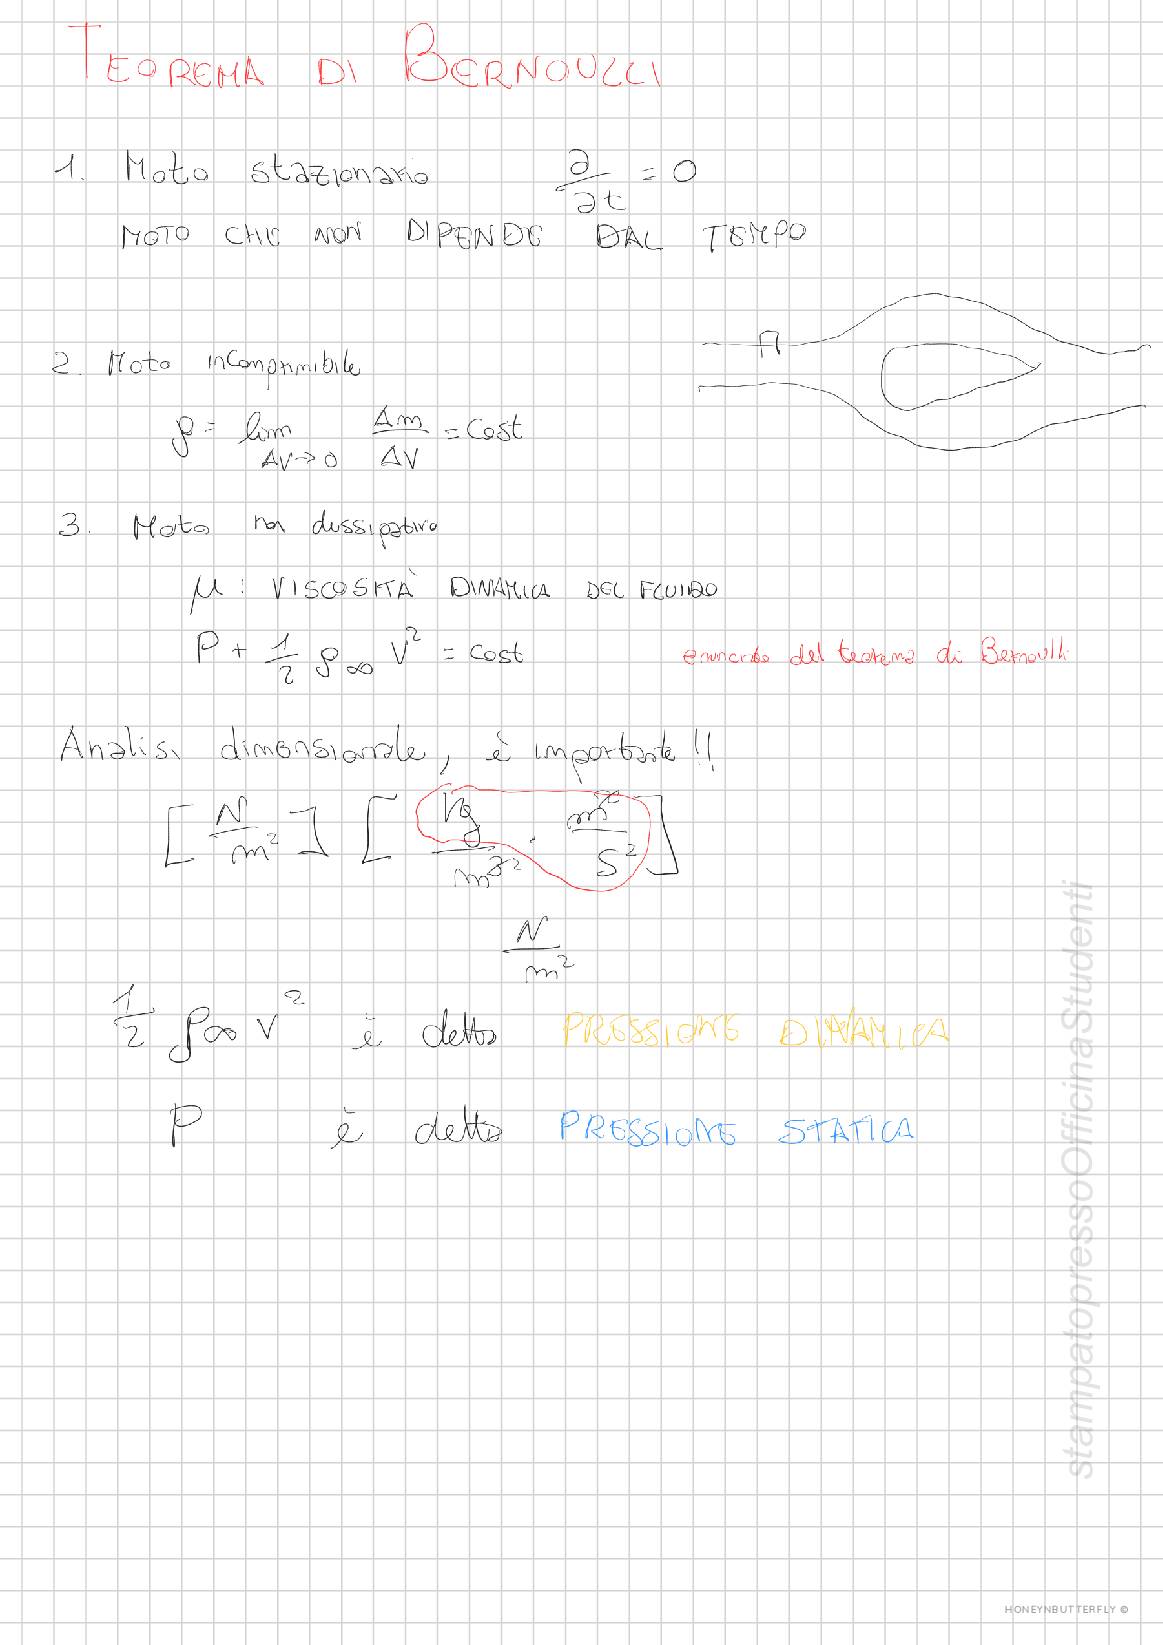 TEOREMA DI BERNOULLI
1. Moto stazionario ∂/∂t = 0
MOTO CHE NON DIPENDE DAL TEMPO
A
2. Moto incomprimibile
ρ = lim ΔV→0 Δm/ΔV = cost
3. Moto non dissipativo
μ : VISCOSITÀ DINAMICA DEL FLUIDO
P + 1/2 ρ∞ V² = cost enunciato del teorema di Bernoulli
Analisi dimensionale, è importante!!
[N/m²] [kg/m³² · m²/s²]
N/m²
1/2 ρ∞ V² è detto PRESSIONE DINAMICA
P è detto PRESSIONE STATICA
stampatopressoOfficinaStudenti
HONEYNBUTTERFLY ©